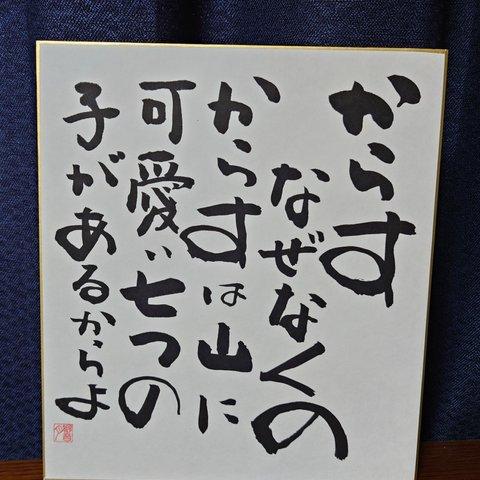 からす
なぜなくの
からすは山に
可愛い七つの
子があるからよ